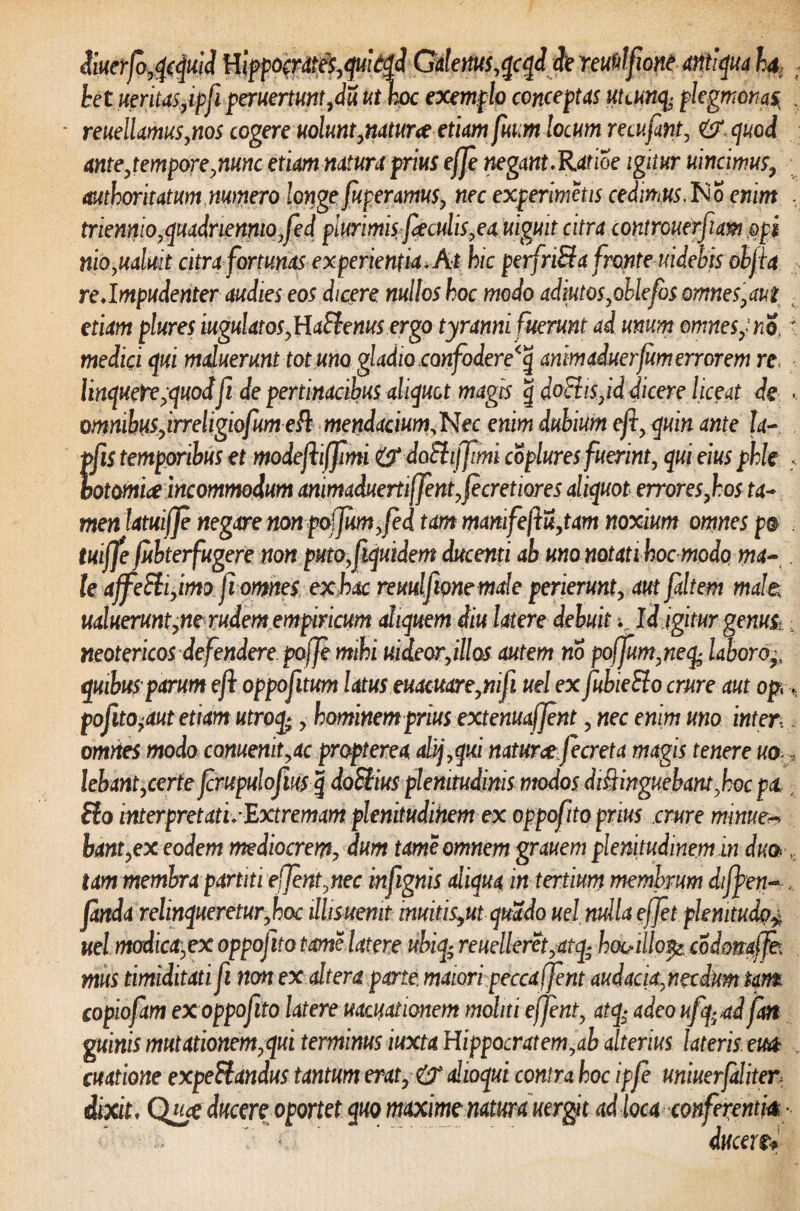 diuerſo,qcquid Hippocrates,quicqd Galenus,qcqd de reuulſione antiqua ha,
bet ueritas,ipſi peruertunt,dũ ut hoc exemplo conceptas utcunq; plegmonas
reuellamus,nos cogere uolunt,naturæ etiam ſuum locum recuſant, & quod
ante,tempore,nunc etiam natura prius eſſe negant.Ratiõe igitur uincimus,
authoritatum numero longe ſuperamus, nec experimẽtis cedimus.Nõ enim
triennio,quadriennio,ſed plurimis ſæculis,ea uiguit citra controuerſiam opi
nio,ualuit citra fortunas experientia.At hic perfricta fronte uidebis obſta
re.Impudenter audies eos dicere nullos hoc modo adiutos,obleſos omnes,aut
etiam plures iugulatos,Hactenus ergo tyranni fuerunt ad unum omnes, nõ
medici qui maluerunt tot uno gladio confodere q̃ animaduerſum errorem re
linquere,quod ſi de pertinacibus aliquot magis q̃ doctis,id dicere liceat de
omnibus,irreligioſum eſt mendacium,Nec enim dubium eſt, quin ante la-
pſis temporibus et modeſtiſſimi & doctiſſimi cõplures fuerint, qui eius phle
botomiæ incommodum animaduertiſſent,ſecretiores aliquot errores,hos ta-
men latuiſſe negare non poſſum,ſed tam manifeſtũ,tam noxium omnes po
tuiſſe ſubterfugere non puto,ſiquidem ducenti ab uno notati hoc modo ma-
le affecti,imo ſi omnes ex hac reuulſione male perierunt, aut ſaltem male
ualuerunt,ne rudem empiricum aliquem diu latere debuit. Id igitur genus
neotericos defendere poſſe mihi uideor,illos autem nõ poſſum,neq; laboro,
quibus parum eſt oppoſitum latus euacuare,niſi uel ex ſubiecto crure aut op
poſito,aut etiam utroq;, hominem prius extenuaſſent, nec enim uno inter
omnes modo conuenit,ac propterea alij,qui naturæ ſecreta magis tenere uo
lebant,certe ſcrupuloſius q̃ doctius plenitudinis modos diſtinguebant,hoc pa
cto interpretati.Extremam plenitudinem ex oppoſito prius crure minue-
bant,ex eodem mediocrem, dum tamẽ omnem grauem plenitudinem in duo
tam membra partiti eſſent,nec inſignis aliqua in tertium membrum diſpen-
ſanda relinqueretur,hoc illis uenit inuitis,ut quãdo uel nulla eſſet plenitudo,
uel modica,ex oppoſito tamẽ latere ubiq; reuelleret,atq; hoc illorꝫ cõdonaſſe
mus timiditati ſi non ex altera parte maiori peccaſſent audacia,necdum tam
copioſam ex oppoſito latere uacuationem moliti eſſent, atq; adeo uſq; ad ſan
guinis mutationem,qui terminus iuxta Hippocratem,ab alterius lateris eua
cuatione expectandus tantum erat, & alioqui contra hoc ipſe uniuerſaliter
dixit. Quæ ducere oportet quo maxime natura uergit ad loca conferentia
ducere,